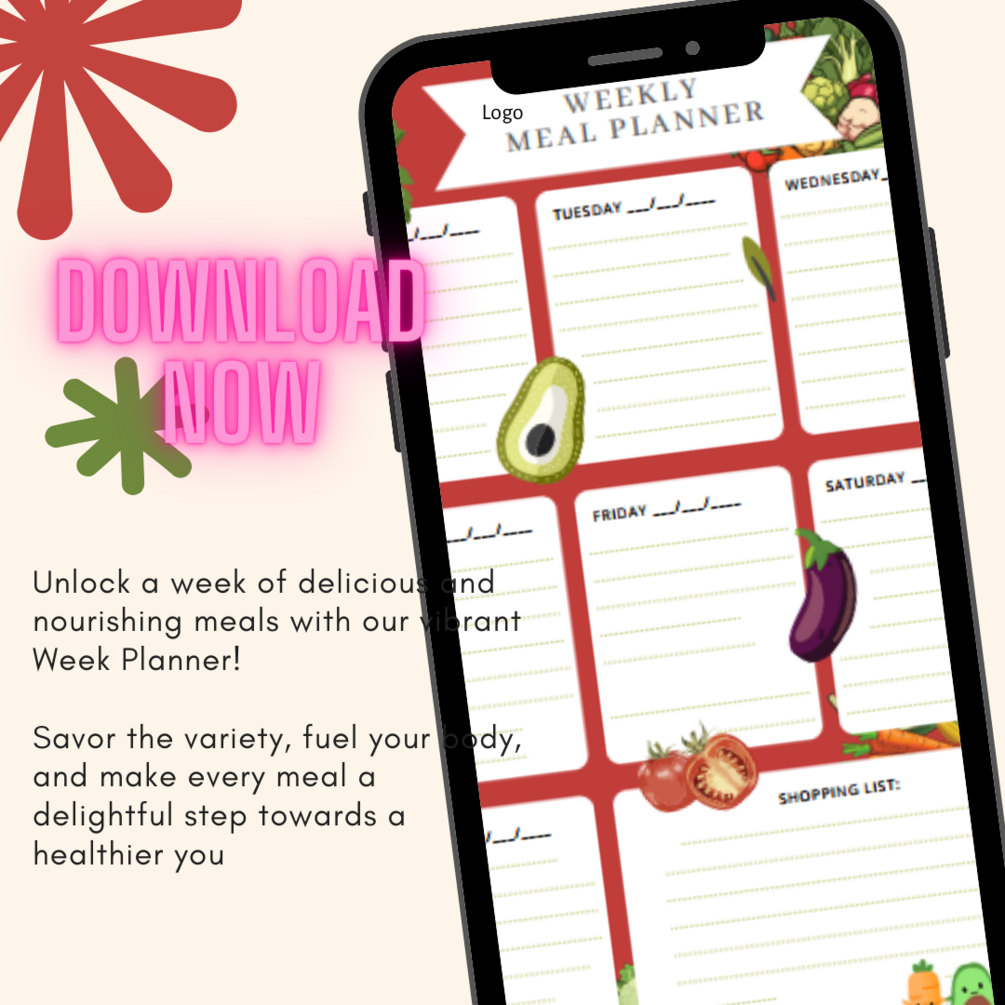 Logo
WEEKLY
MEAL PLANNER
__/__/____
TUESDAY __/__/____
WEDNESDAY_
DOWNLOAD
NOW
__/__/____
FRIDAY __/__/____
SATURDAY __
Unlock a week of delicious and
nourishing meals with our vibrant
Week Planner!
Savor the variety, fuel your body,
and make every meal a
delightful step towards a
healthier you
SHOPPING LIST:
__/__/____